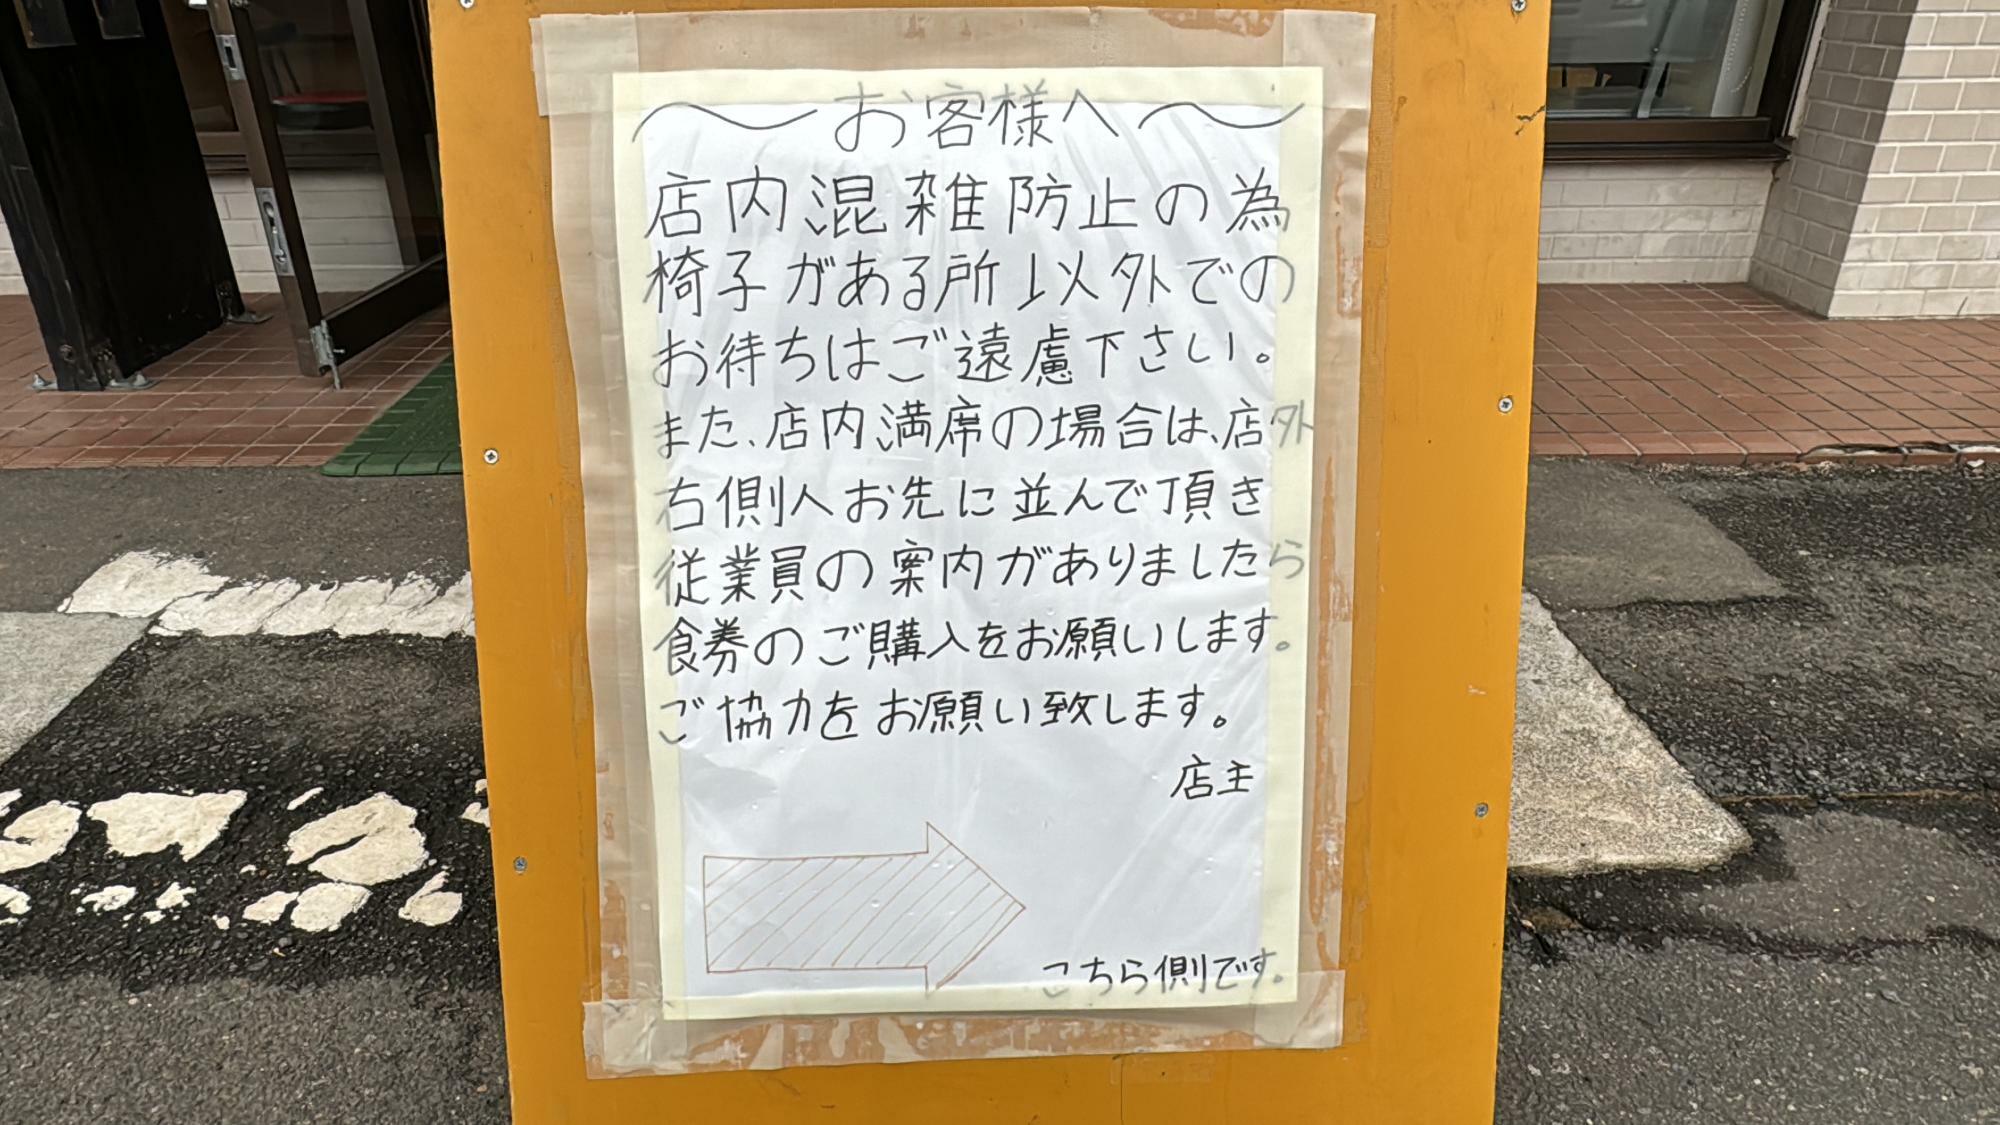 〜お客様へ〜
店内混雑防止の為
椅子がある所以外での
お待ちはご遠慮下さい。
また、店内満席の場合は、店外
右側へお先に並んで頂き
従業員の案内がありましたら
食券のご購入をお願いします。
ご協力をお願い致します。
店主
こちら側です。